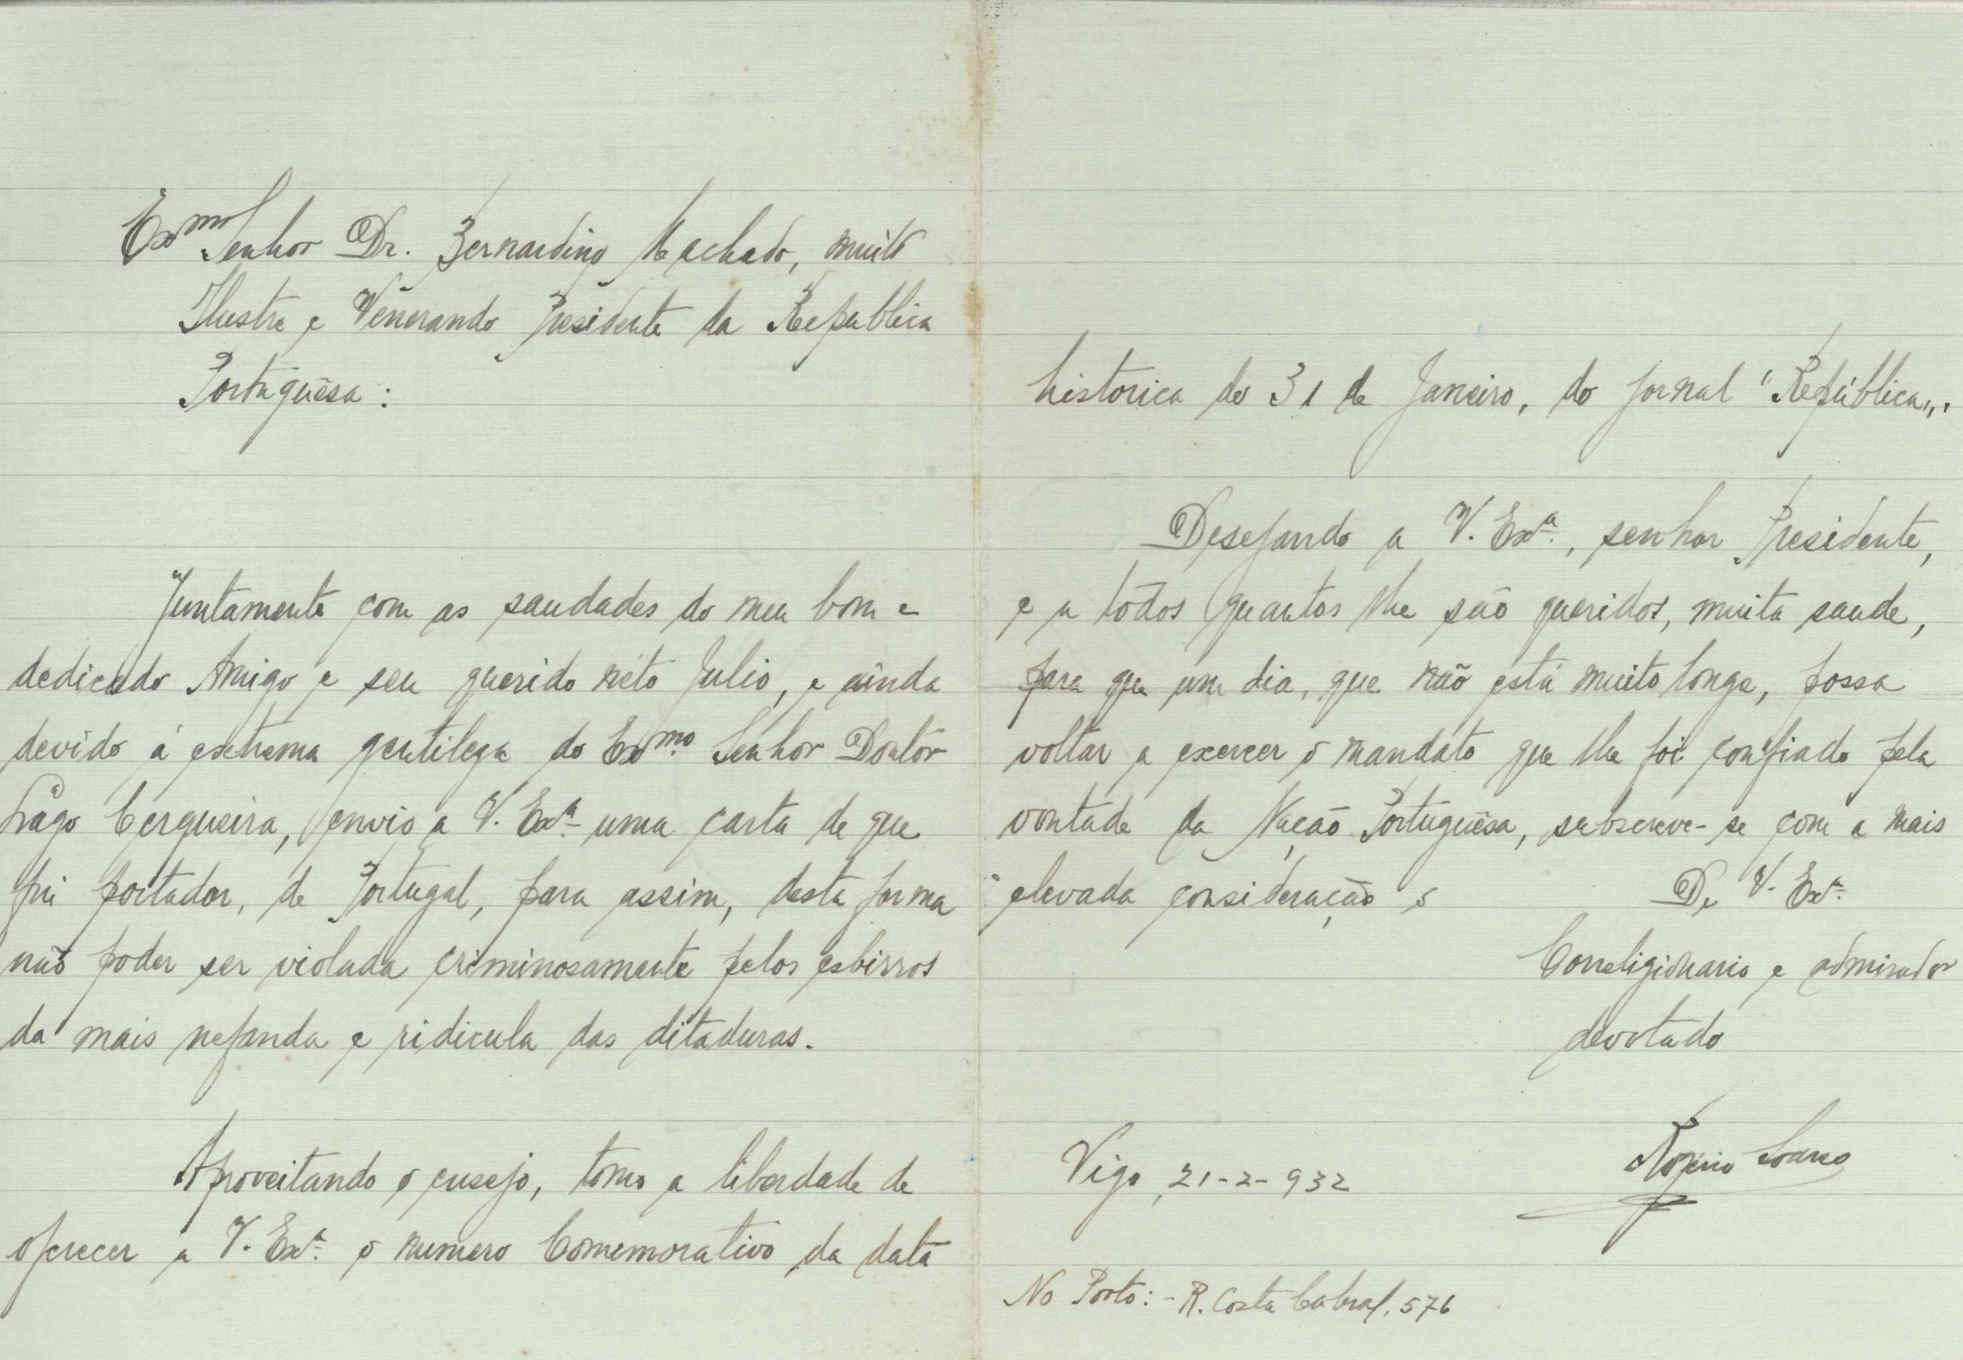 Exmo Senhor Dr. Bernardino Machado, muito
Ilustre e Venerando Presidente da Republica
Portuguêsa:
Juntamente com as saudades do meu bom e
dedicado Amigo e seu querido néto Julio, e ainda
devido á extrema gentileza do Exmo Senhor Doutôr
Lágo Cerqueira, envio a V. Exa uma carta de que
fui portador, de Portugal, para assim, desta forma
não poder ser violada criminosamente pelos esbirros
da mais nefanda e ridicula das ditaduras.
Aproveitando o ensejo, tomo a liberdade de
oferecer a V. Exa o numero Comemorativo da data
historica do 31 de Janeiro, do jornal "República".
Desejando a V. Exa., senhor Presidente,
e a tôdos quantos lhe são queridos, muita saude,
para que um dia, que não está muito longe, possa
voltar a exercer o mandato que lhe foi confiado pela
vontade da Nação Portuguêsa, subscreve-se com a mais
elevada consideração
De V. Exa.
Correligionario e admirador
devotado
Rogério Soares
Vigo, 21-2-932
No Porto: - R. Costa Cabral, 576